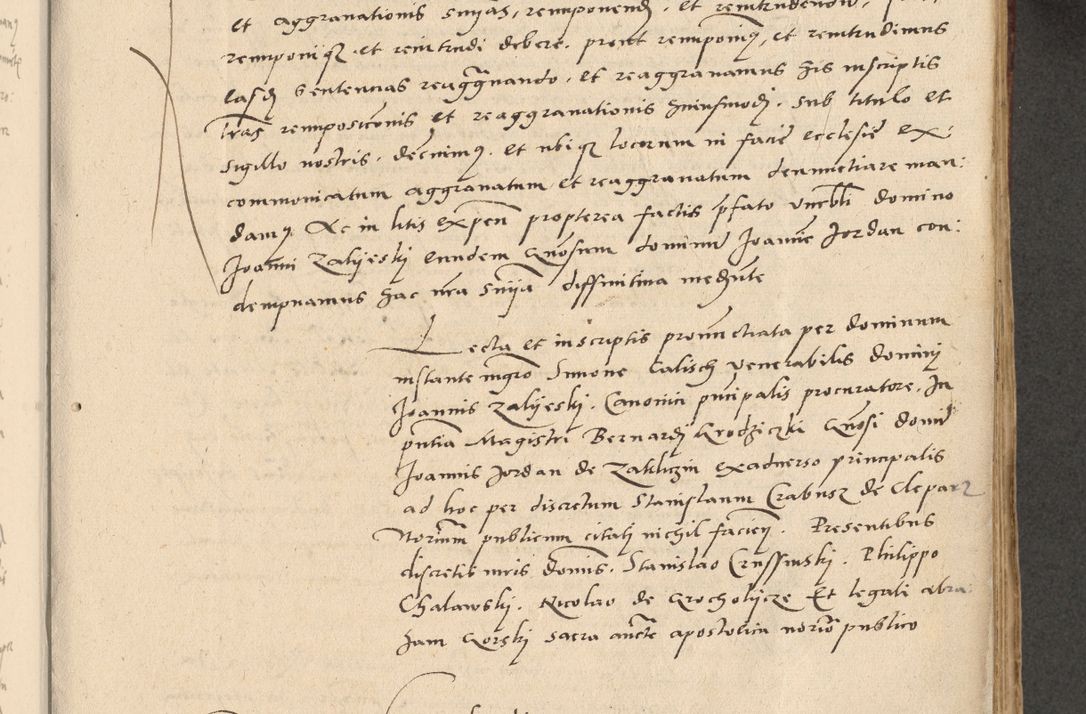 et aggravationis snias, remponendi, et reintrudendi,
remponiqz et reintrudi debere. prent remponimq, et reintrudimus
easdj sententias reaggravando. et reaggravamus his inscriptis
lras rempositionis et reaggravationis huiusmodj. sub titulo et
sigillo nostris. decnimq. et ubiqz locorum in facie ecclesie ex:
communicatum aggravatum et reaggravatum denuntiare man:
damq. Ac in litis expen propterea factis pfato vnebli domino
Joanni Zalijeski eundem gnosum dominum Joannem Jordan con:
dempnamus hac nra snija diffinitiva mediante
Lecta et in scriptis pronunctiata per dominum
instante mgro Simone Calisch venerabilis dominj
Joannis Zalijeski. Canonici pncipalis procuratore. In
pntia Magistri Bernardj Grodziczki Gnosi domi
Joannis Jordan de Zakliczin exadverso principalis
ad hoc per discretum Stanislaum Crabusz de Clepar
Norium publicum citatj nichil facien. Presentibus
discretis viris dominis. Stanislao Crussinskj. Philippo
Chalawskj. Nicolao de Grocholijcze Et legali abra:
ham Gorskj sacra aucte apostolica norio publico